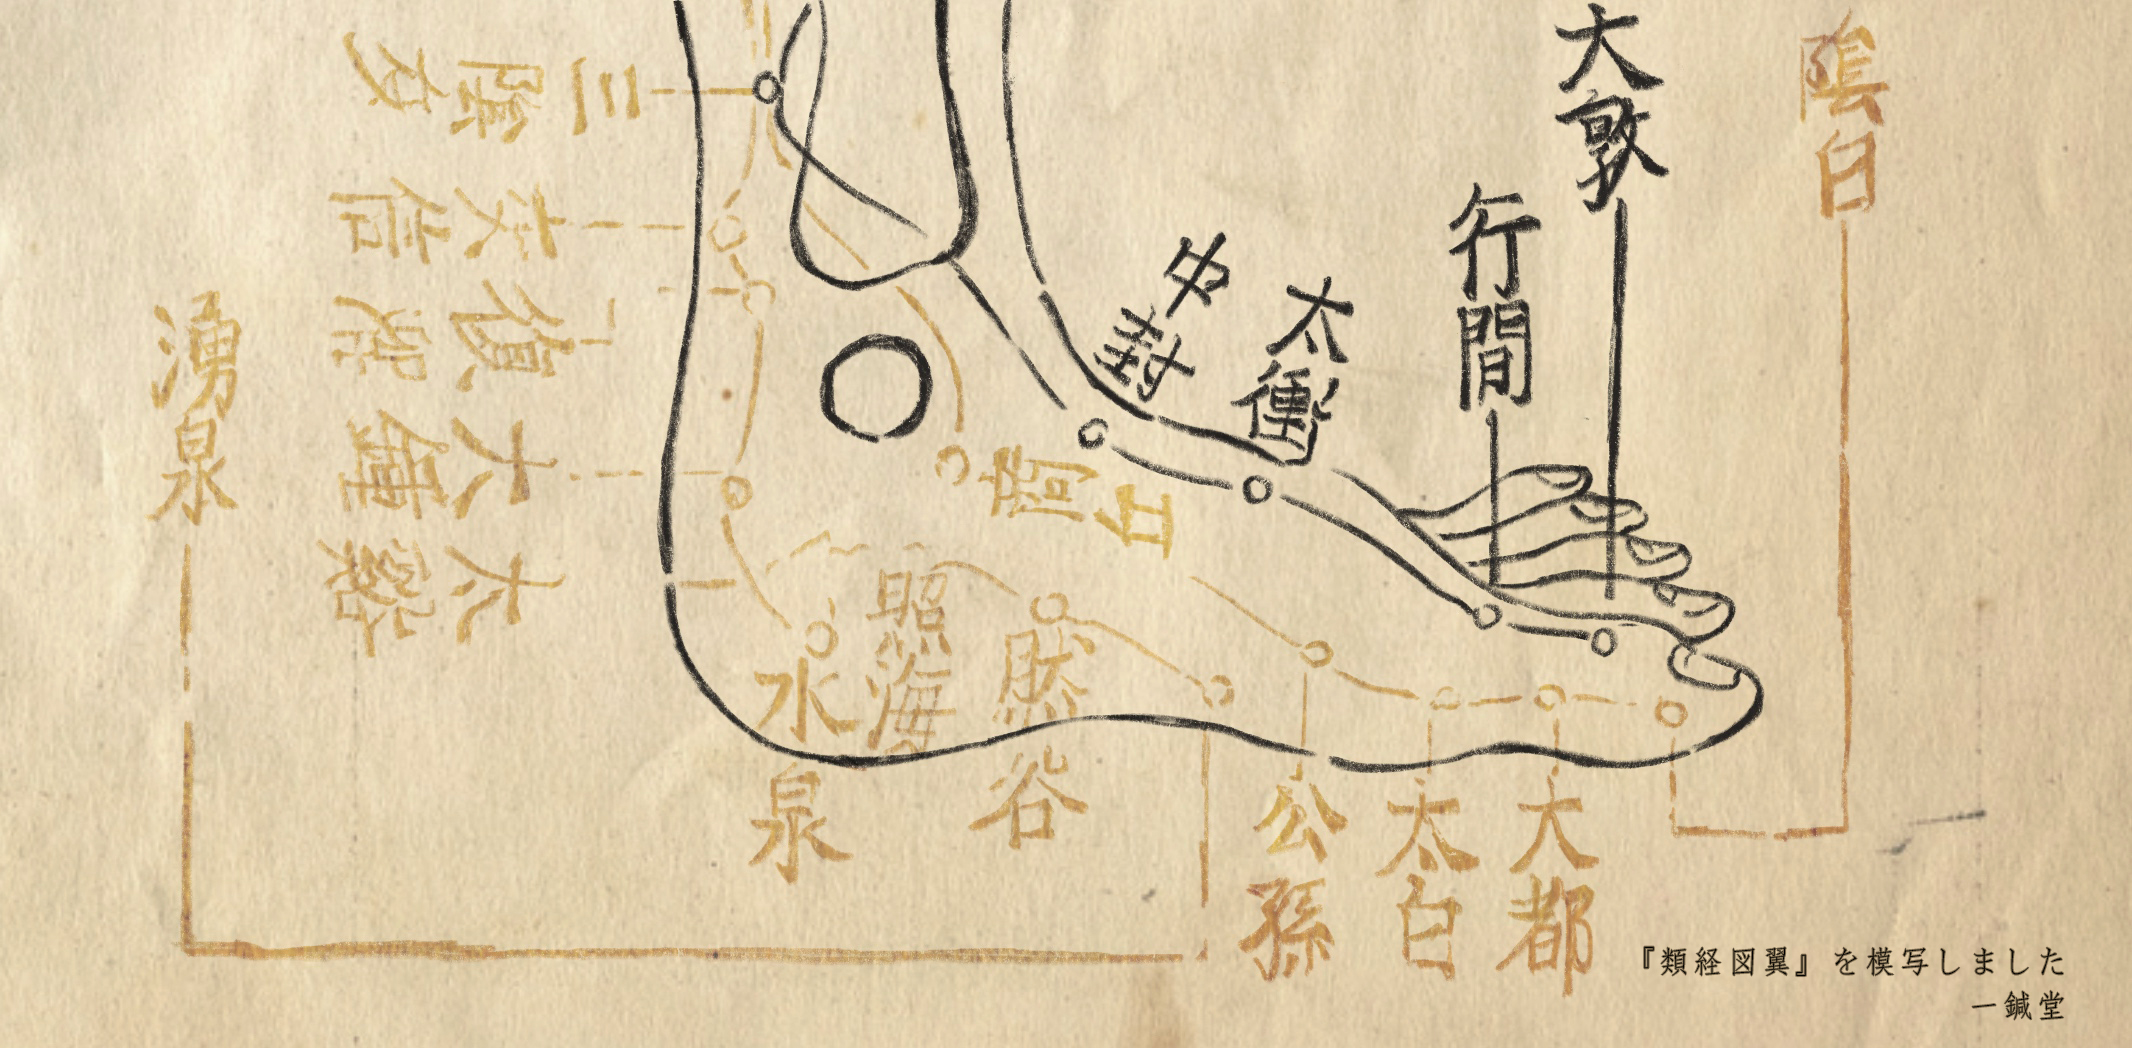 大敦
行間
太衝
中封
隂白
三陰交
交信
復溜
大鍾
太谿
湧泉
商丘
照海
水泉
然谷
公孫
太白
大都
『類経図翼』を模写しました
一鍼堂